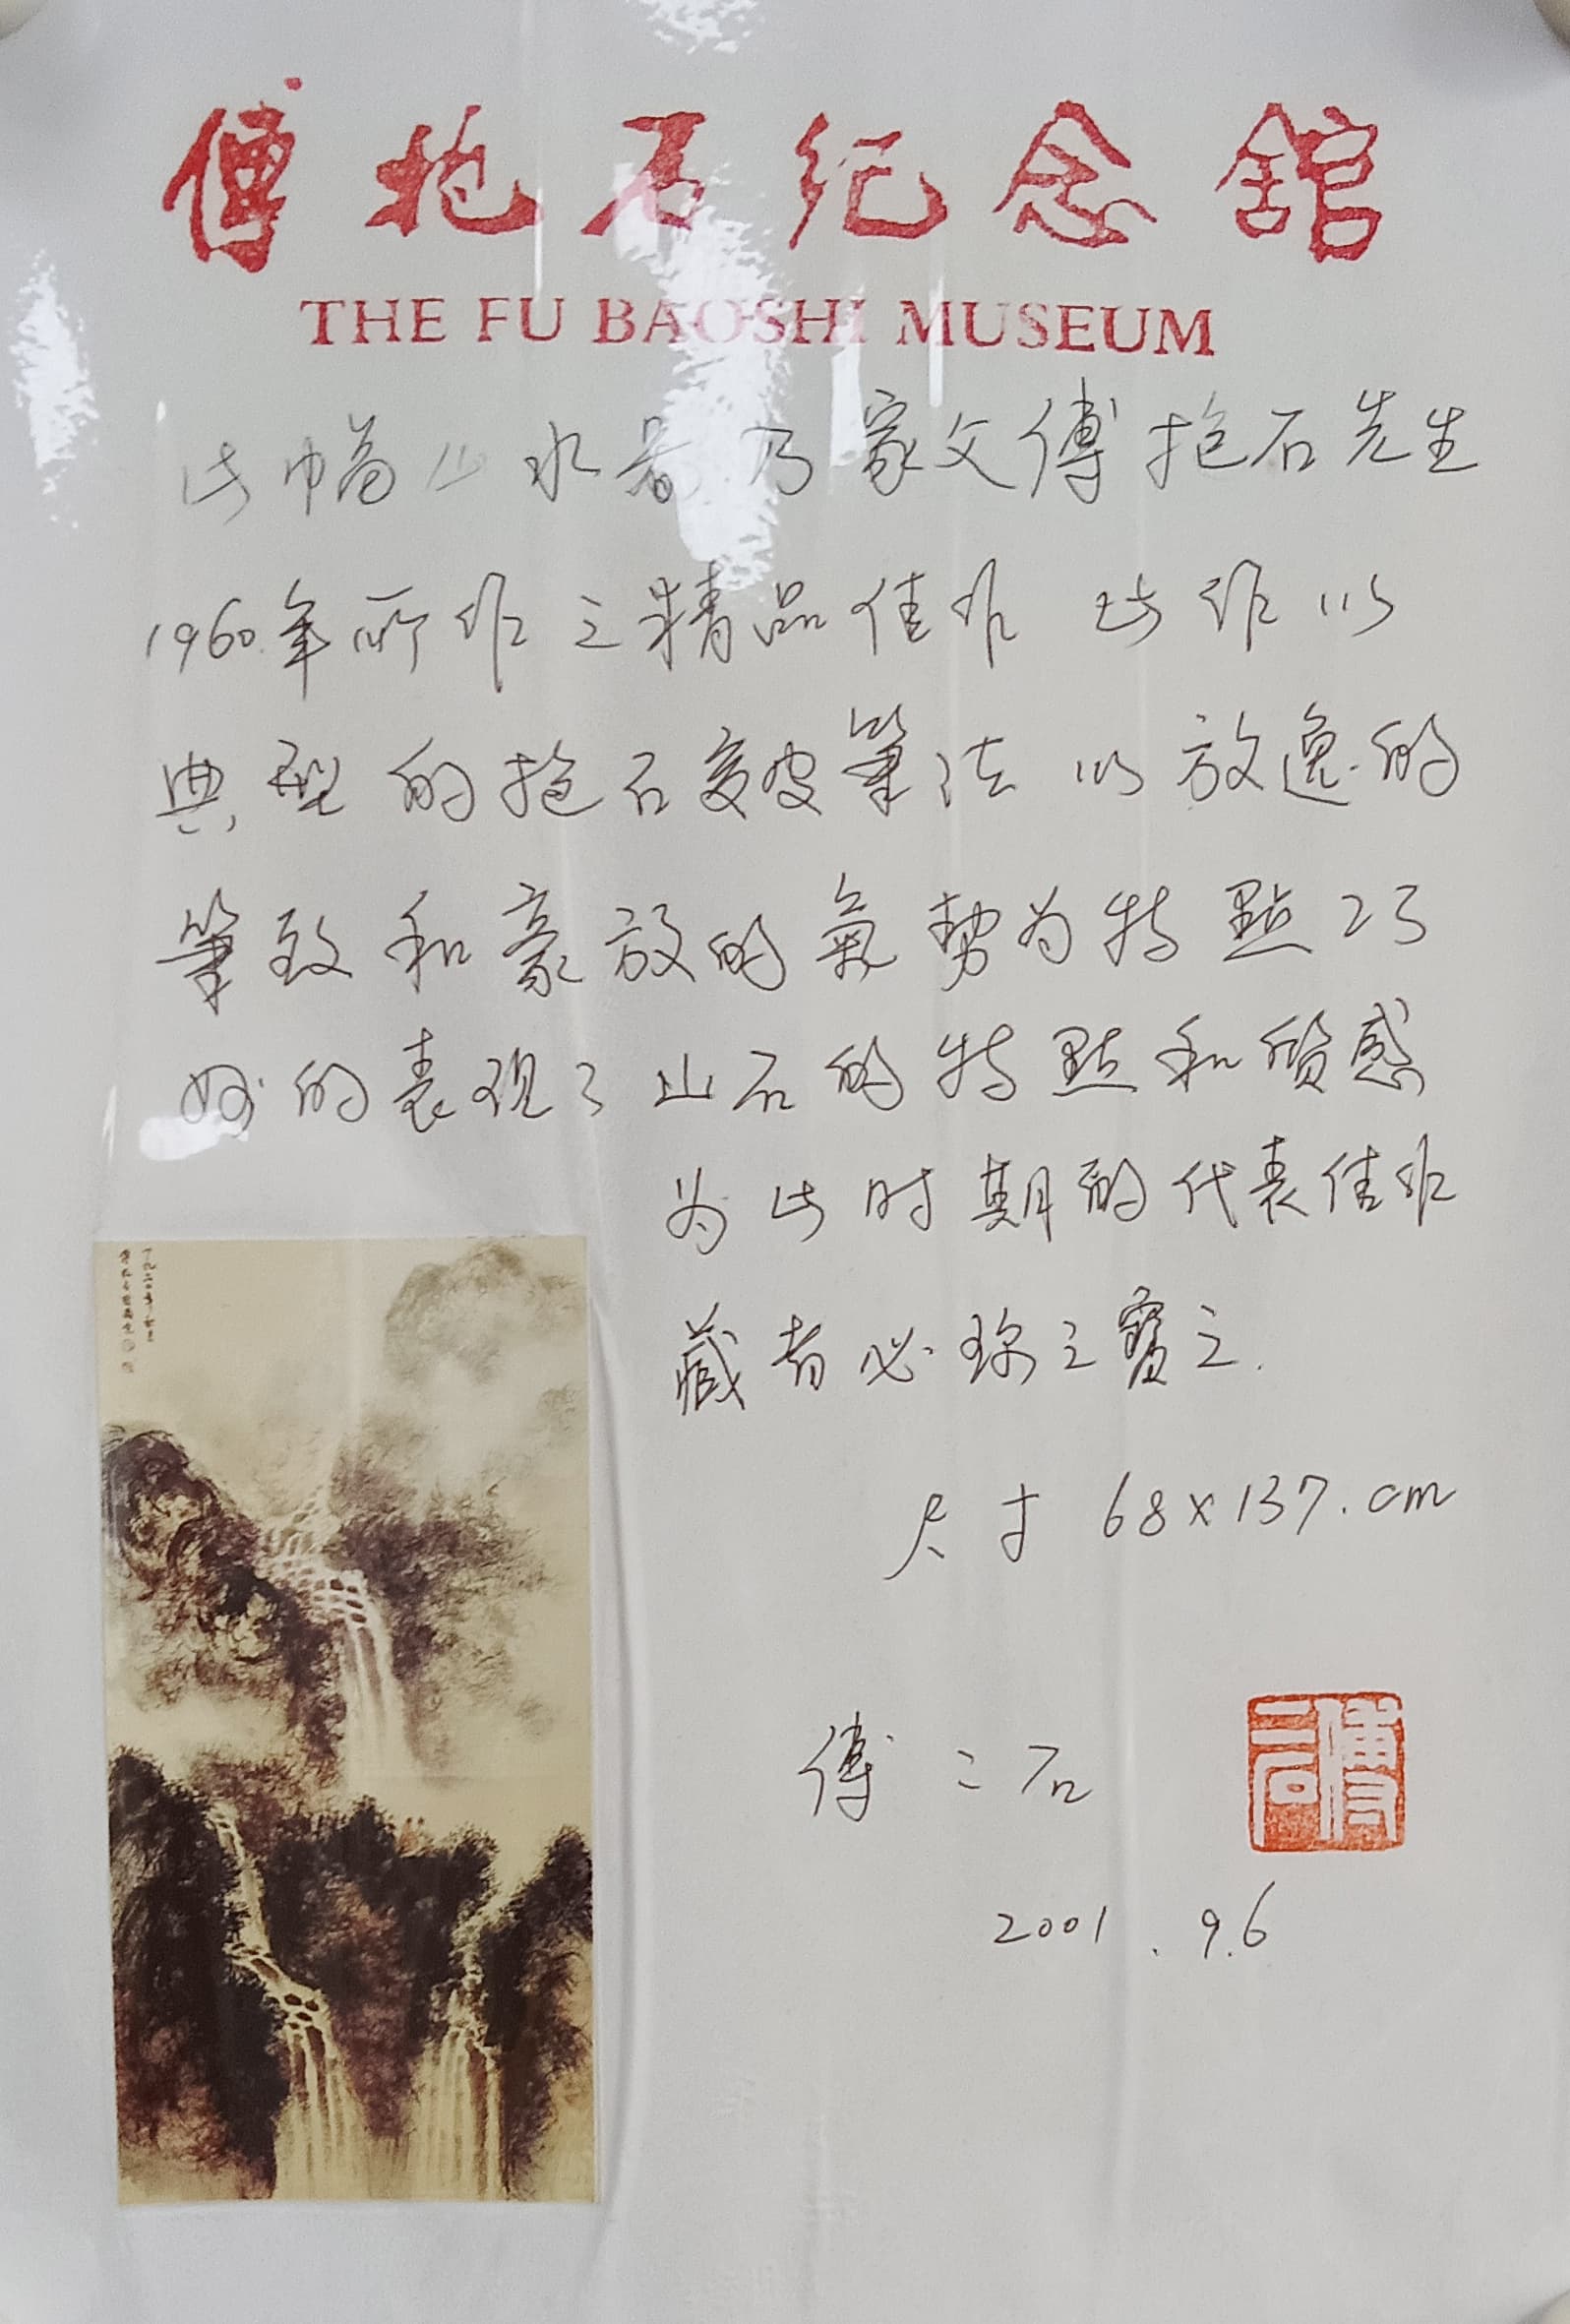 傅抱石纪念館
THE FU BAOSHI MUSEUM
此幅山水畧乃家父傅抱石先生
1960年所作之精品佳作 此作以
典型的抱石皴笔法 以放逸的
筆致和豪放的氣势为特點巧
妙的表现了山石的特點和质感
为此时期的代表佳作
藏者必珍之寳之.
尺寸 68×137.cm
傅二石
傅二石
2001.9.6